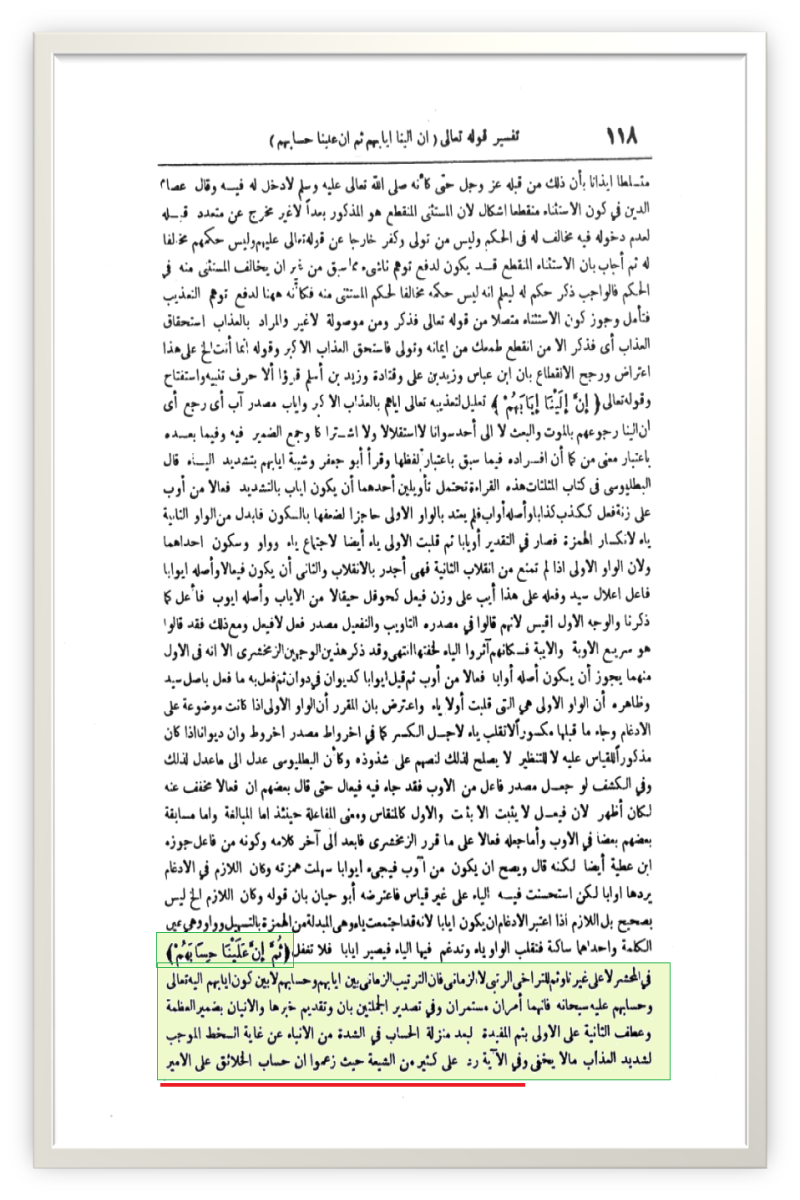 ١١٨
تفسير قوله تعالى ( ان الينا ايابهم ثم ان علينا حسابهم )
متسلطا ايذانا بأن ذلك من قبله عز وجل حتى كأنه صلى الله تعالى عليه وسلم لا دخل له فيه وقال عصام
الدين في كون الاستثناء منقطعا اشكال لان المستثنى المنقطع هو المذكور بعد الا غير مخرج عن متعدد قبله
لعدم دخوله فيه مخالف له في الحكم وليس من تولى وكفر خارجا عن قوله تعالى عليهم وليس حكمهم مخالفا
له ثم أجاب بان الاستثناء المنقطع قد يكون لدفع توهم ناشىء مما سبق من غير ان يخالف المستثنى منه في
الحكم فالواجب ذكر حكم له ليعلم انه ليس حكمه مخالفا لحكم المستثنى منه فكأنه ههنا لدفع توهم التعذيب
فتأمل وجوز كون الاستثناء متصلا من قوله تعالى فذكر ومن موصولة لا غير والمراد بالعذاب استحقاق
العذاب أى فذكر الا من انقطع طمعك من ايمانه وتولى فاستحق العذاب الاكبر وقوله انما أنت الخ على هذا
اعتراض ورجح الانقطاع بان ابن عباس وزيد بن على وقتادة وزيد بن أسلم قرؤا ألا حرف تنبيه واستفتاح
وقوله تعالى ﴿ إِنَّ إِلَيْنَا إِيَابَهُمْ ﴾ تعليل لتعذيبه تعالى اياهم بالعذاب الاكبر واياب مصدر آب أى رجع أى
ان الينا رجوعهم بالموت والبعث لا الى أحد سوانا لا استقلالا ولا اشتراكا وجمع الضمير فيه وفيما بعده
باعتبار معنى من كما أن افراده فيما سبق باعتبار لفظها وقرأ أبو جعفر وشيبة ايابهم بتشديد الياء قال
البطليوسى فى كتاب المثلثات هذه القراءة تحتمل تأويلين أحدهما أن يكون اياب بالتشديد فعالا من أوب
على زنة فعل ككذب كذابا وأصله أواب فلم يعتد بالواو الاولى حاجزا لضعفها بالسكون فابدل من الواو الثانية
ياء لانكسار الهمزة فصار في التقدير أويابا ثم قلبت الاولى ياء أيضا لاجتماع ياء وواو وسكون احداهما
ولان الواو الاولى اذا لم تمنع من انقلاب الثانية فهى أجدر بالانقلاب والثانى أن يكون فيعالا وأصله ايوابا
فاعل اعلال سيد وفعله على هذا أيب على وزن فيعل كحوقل حيقالا من الاياب وأصله ايوب فأعل كما
ذكرنا والوجه الاول اقيس لانهم قالوا في مصدره التاويب والتفعيل مصدر فعل لا فيعل ومع ذلك فقد قالوا
هو سريع الاوبة والايبة فكانهم آثروا الياء لخفتها انتهى وقد ذكر هذين الوجهين الزمخشرى الا انه فى الاول
منهما يجوز أن يكون أصله أوابا فعالا من أوب ثم قيل ايوابا كديوان في دوان ثم فعل به ما فعل باصل سيد
وظاهره أن الواو الاولى هي التى قلبت أولا ياء واعترض بان المقرر أن الواو الاولى اذا كانت موضوعة على
الادغام وجاء ما قبلها مكسورا لا تقلب ياء لاجل الكسر كما في اخرواط مصدر اخروط وان ديوانا اذا كان
مذكورا للقياس عليه لا للتنظير لا يصلح لذلك لنصهم على شذوذه وكأن البطليوسى عدل الى ما عدل لذلك
وفي الكشف لو جعل مصدر فاعل من الاوب فقد جاء فيه فيعال حتى قال بعضهم ان فعالا مخفف عنه
لكان أظهر لان فيعل لا يثبت الا بثبت والاول كالمنقاس ومعنى المفاعلة حينئذ اما المبالغة واما مسابقة
بعضهم بعضا في الاوب وأما جعله فعالا على ما قرر الزمخشرى فابعد الى آخر كلامه وكونه من فاعل جوزه
ابن عطية أيضا لكنه قال ويصح ان يكون من آوب فيجىء ايوابا سهلت همزته وكان اللازم في الادغام
يردها اوابا لكن استحسنت فيه الياء على غير قياس فاعترضه أبو حيان بان قوله وكان اللازم الخ ليس
بصحيح بل اللازم اذا اعتبر الادغام ان يكون ايابا لانه قد اجتمعت ياء وهى المبدلة من الهمزة بالتسهيل وواو وهى عين
الكلمة واحداهما ساكنة فتقلب الواو ياء وتدغم فيها الياء فيصير ايابا فلا تغفل ﴿ ثُمَّ إِنَّ عَلَيْنَا حِسَابَهُمْ ﴾
في المحشر لا على غيرنا وثم للتراخى الرتبى لا الزمانى فان الترتيب الزمانى بين ايابهم وحسابهم لا بين كون ايابهم اليه تعالى
وحسابهم عليه سبحانه فانهما أمران مستمران وفي تصدير الجملتين بان وتقديم خبرها والاتيان بضمير العظمة
وعطف الثانية على الاولى بثم المفيدة لبعد منزلة الحساب في الشدة من الانباء عن غاية السخط الموجب
لشديد العذاب مالا يخفى وفي الآية رد على كثير من الشيعة حيث زعموا ان حساب الخلائق على الامير